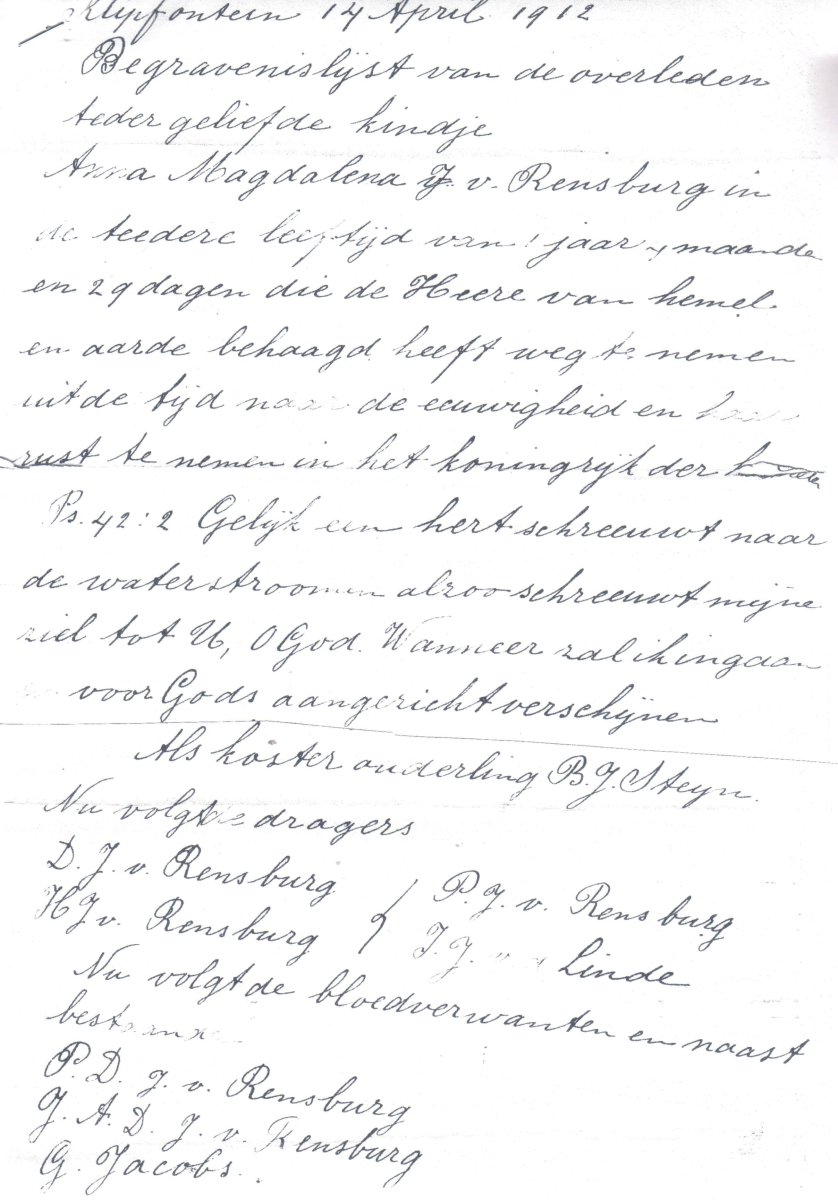 Klipfontein 14 April 1912
Begravenislijst van de overleden
teder geliefde kindje
Anna Magdalena J v. Rensburg in
de teedere leeftijd van 1 jaar maande
en 29 dagen die de Heere van hemel
en aarde behaagd heeft weg te nemen
uit de tijd naar de eeuwigheid en
rust te nemen in het koningrijk der
Ps. 42:2 Gelijk een hert schreeuwt naar
de waterstroomen alzoo schreeuwt mijne
ziel tot U, O God. Wanneer zal ik ingaan
voor Gods aangezicht verschijnen
Als koster ouderling B.J. Steyn.
Nu volgt de dragers
D. J. v. Rensburg
P. J. v. Rensburg
H J v. Rensburg
J. J. Linde
Nu volgt de bloedverwanten en naast
bestaande
P. D. J. v. Rensburg
J. A. D. J. v. Rensburg
G. Jacobs.